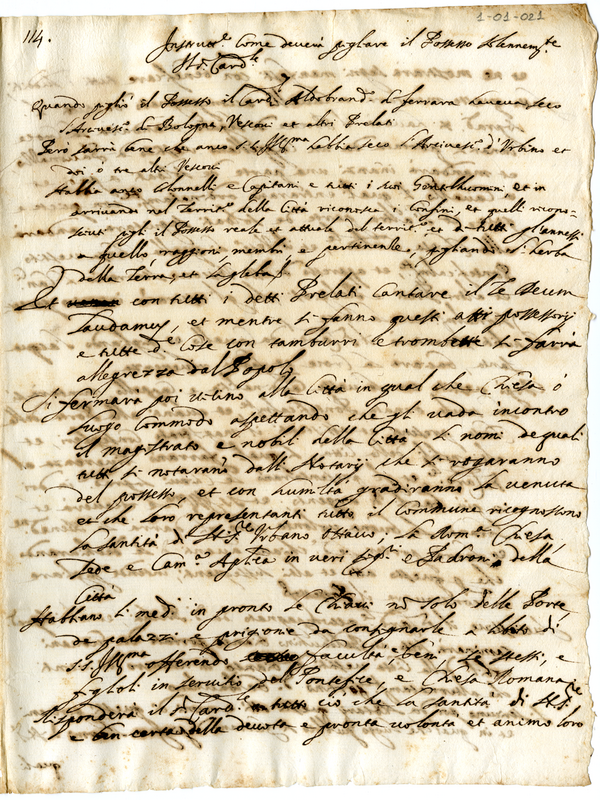 1-01-021
114.
Instrutt.e Come deverà pigliare il Possesso solennem.te
Il s.r Card.le
Quando pigliò il Possesso il Card. Aldobrand.o di ferrara haveva seco
l'Arcivesc.o di Bologna, Vescovi et altri Prelati
Però sarrà bene che anco s.s. Ill.ma habbia seco l'Arcivesc.o d'Urbino et
doi ò tre altri Vescovi
Habbia anco Colonnelli e Capitani e tutti i suoi Gentilhuomini, et in
arrivando nel Territ.o della Città riconosca i Confini, et quelli ricono-
sciuti pigli il Possesso reale et attuale del territ.o, et di tutti gl'annessi
a quello raggioni, membri, e pertinentie, pigliandosi l'herba
della Terra, et
Et con tutti i detti Prelati Cantare il Te Deum
Laudamus, et mentre si fanno questi atti possessorij
e tutte d.e Cose con tamburri, e trombette si farrà
allegrezza dal Popolo
Si fermarà poi vicino alla Città in qual che Chiesa ò
luogo Commodo aspettando che gli vada incontro
il magistrato e nobili della Città li nomi de quali
tutti si notarano dalli Notarij che si rogaranno
del possesso, et con humiltà gradiranno la venuta
et che loro representanti tutto il Commune ricognoscono
la santità di N. S.re Urbano Ottavo, la Rom.a Chiesa
Sede e Cam.a Ap.lica in veri Sig.ri e Padroni della
Città
Habbano li med.i in pronto le Chiavi nō solo delle Porte
de palazzi e prigione da consignarle a di
s.s. Ill.ma offerendo facultà, beni, se stessi, e
figloli in servitio del Pontefice, e Chiesa Romana
Risponderà il s.r Card.le ciò che la Santità di N.S.re
e certa della devota e pronta volontà et animo loro